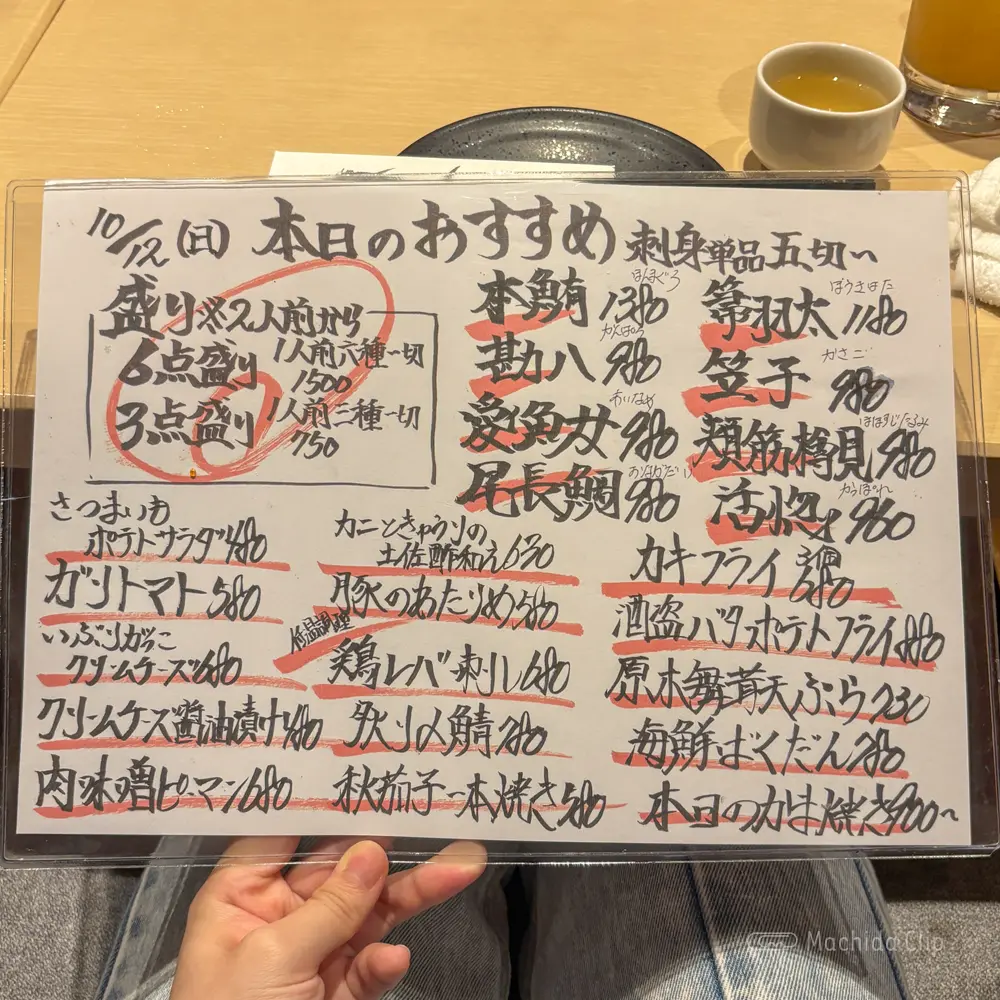 10/12(日) 本日のおすすめ 刺身単品五切〜
盛り※2人前から
6点盛り 1人前六種一切
1500
3点盛り 1人前三種一切
750
ほんまぐろ
本鮪 1380
かんぱち
勘八 980
あいなめ
愛魚女 980
おながだい
尾長鯛 980
ほうきはた
箒羽太 1180
かさご
笠子 980
ほほすじたるみ
頬筋樽見 980
かつぽれ
活惚れ 960
さつまいも
ポテトサラダ 480
ガリトマト 580
いぶりがっこ
クリームチーズ 680
クリームチーズ醤油漬け 480
肉味噌ピーマン 680
カニときゅうりの
土佐酢和え 630
豚のあたりめ 580
低温調理
鶏レバー刺し 680
炙り〆鯖 780
秋茄子一本焼き 580
カキフライ 680
酒盗バタポテトフライ 880
原木舞茸天ぷら 730
海鮮ばくだん 780
本日のかま焼き 900〜
Machida Clip